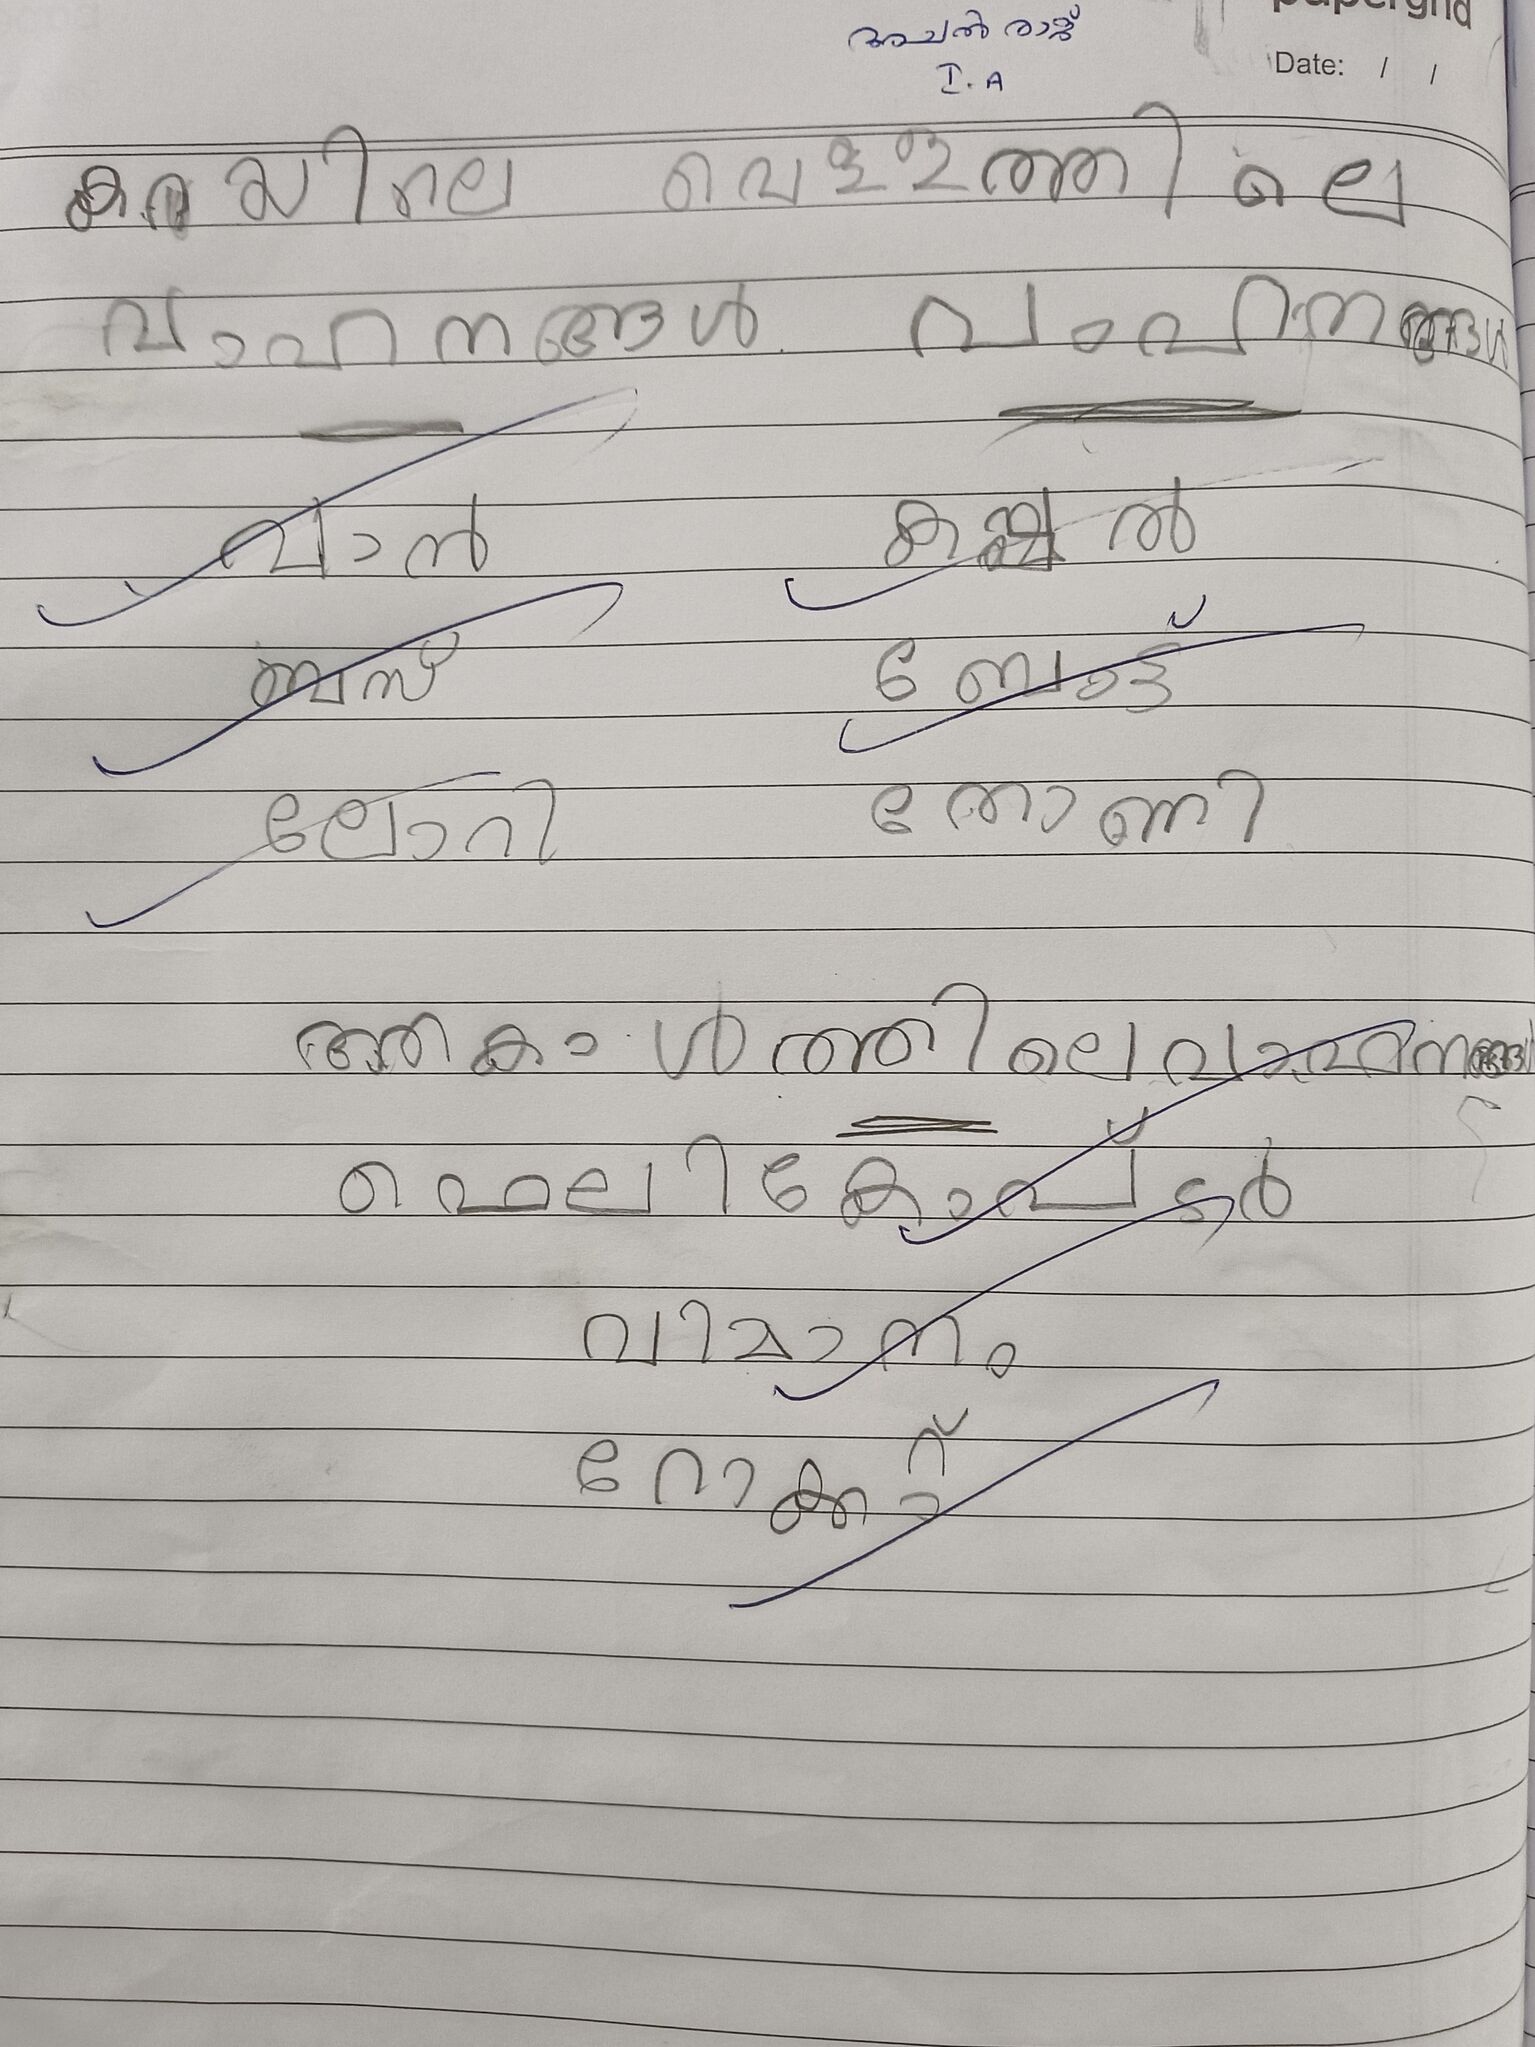 papergrid
Date: / /
അചൽ രാജ്
I. A
കരയിലെ വെള്ളത്തിലെ
വാഹനങ്ങൾ വാഹനങ്ങൾ
വാൻ കപ്പൽ
ബസ് ബോട്ട്
ലോറി തോണി
ആകാശത്തിലെ വാഹനങ്ങൾ
ഹെലികോപ്ടർ
വിമാനം
റോക്കറ്റ്